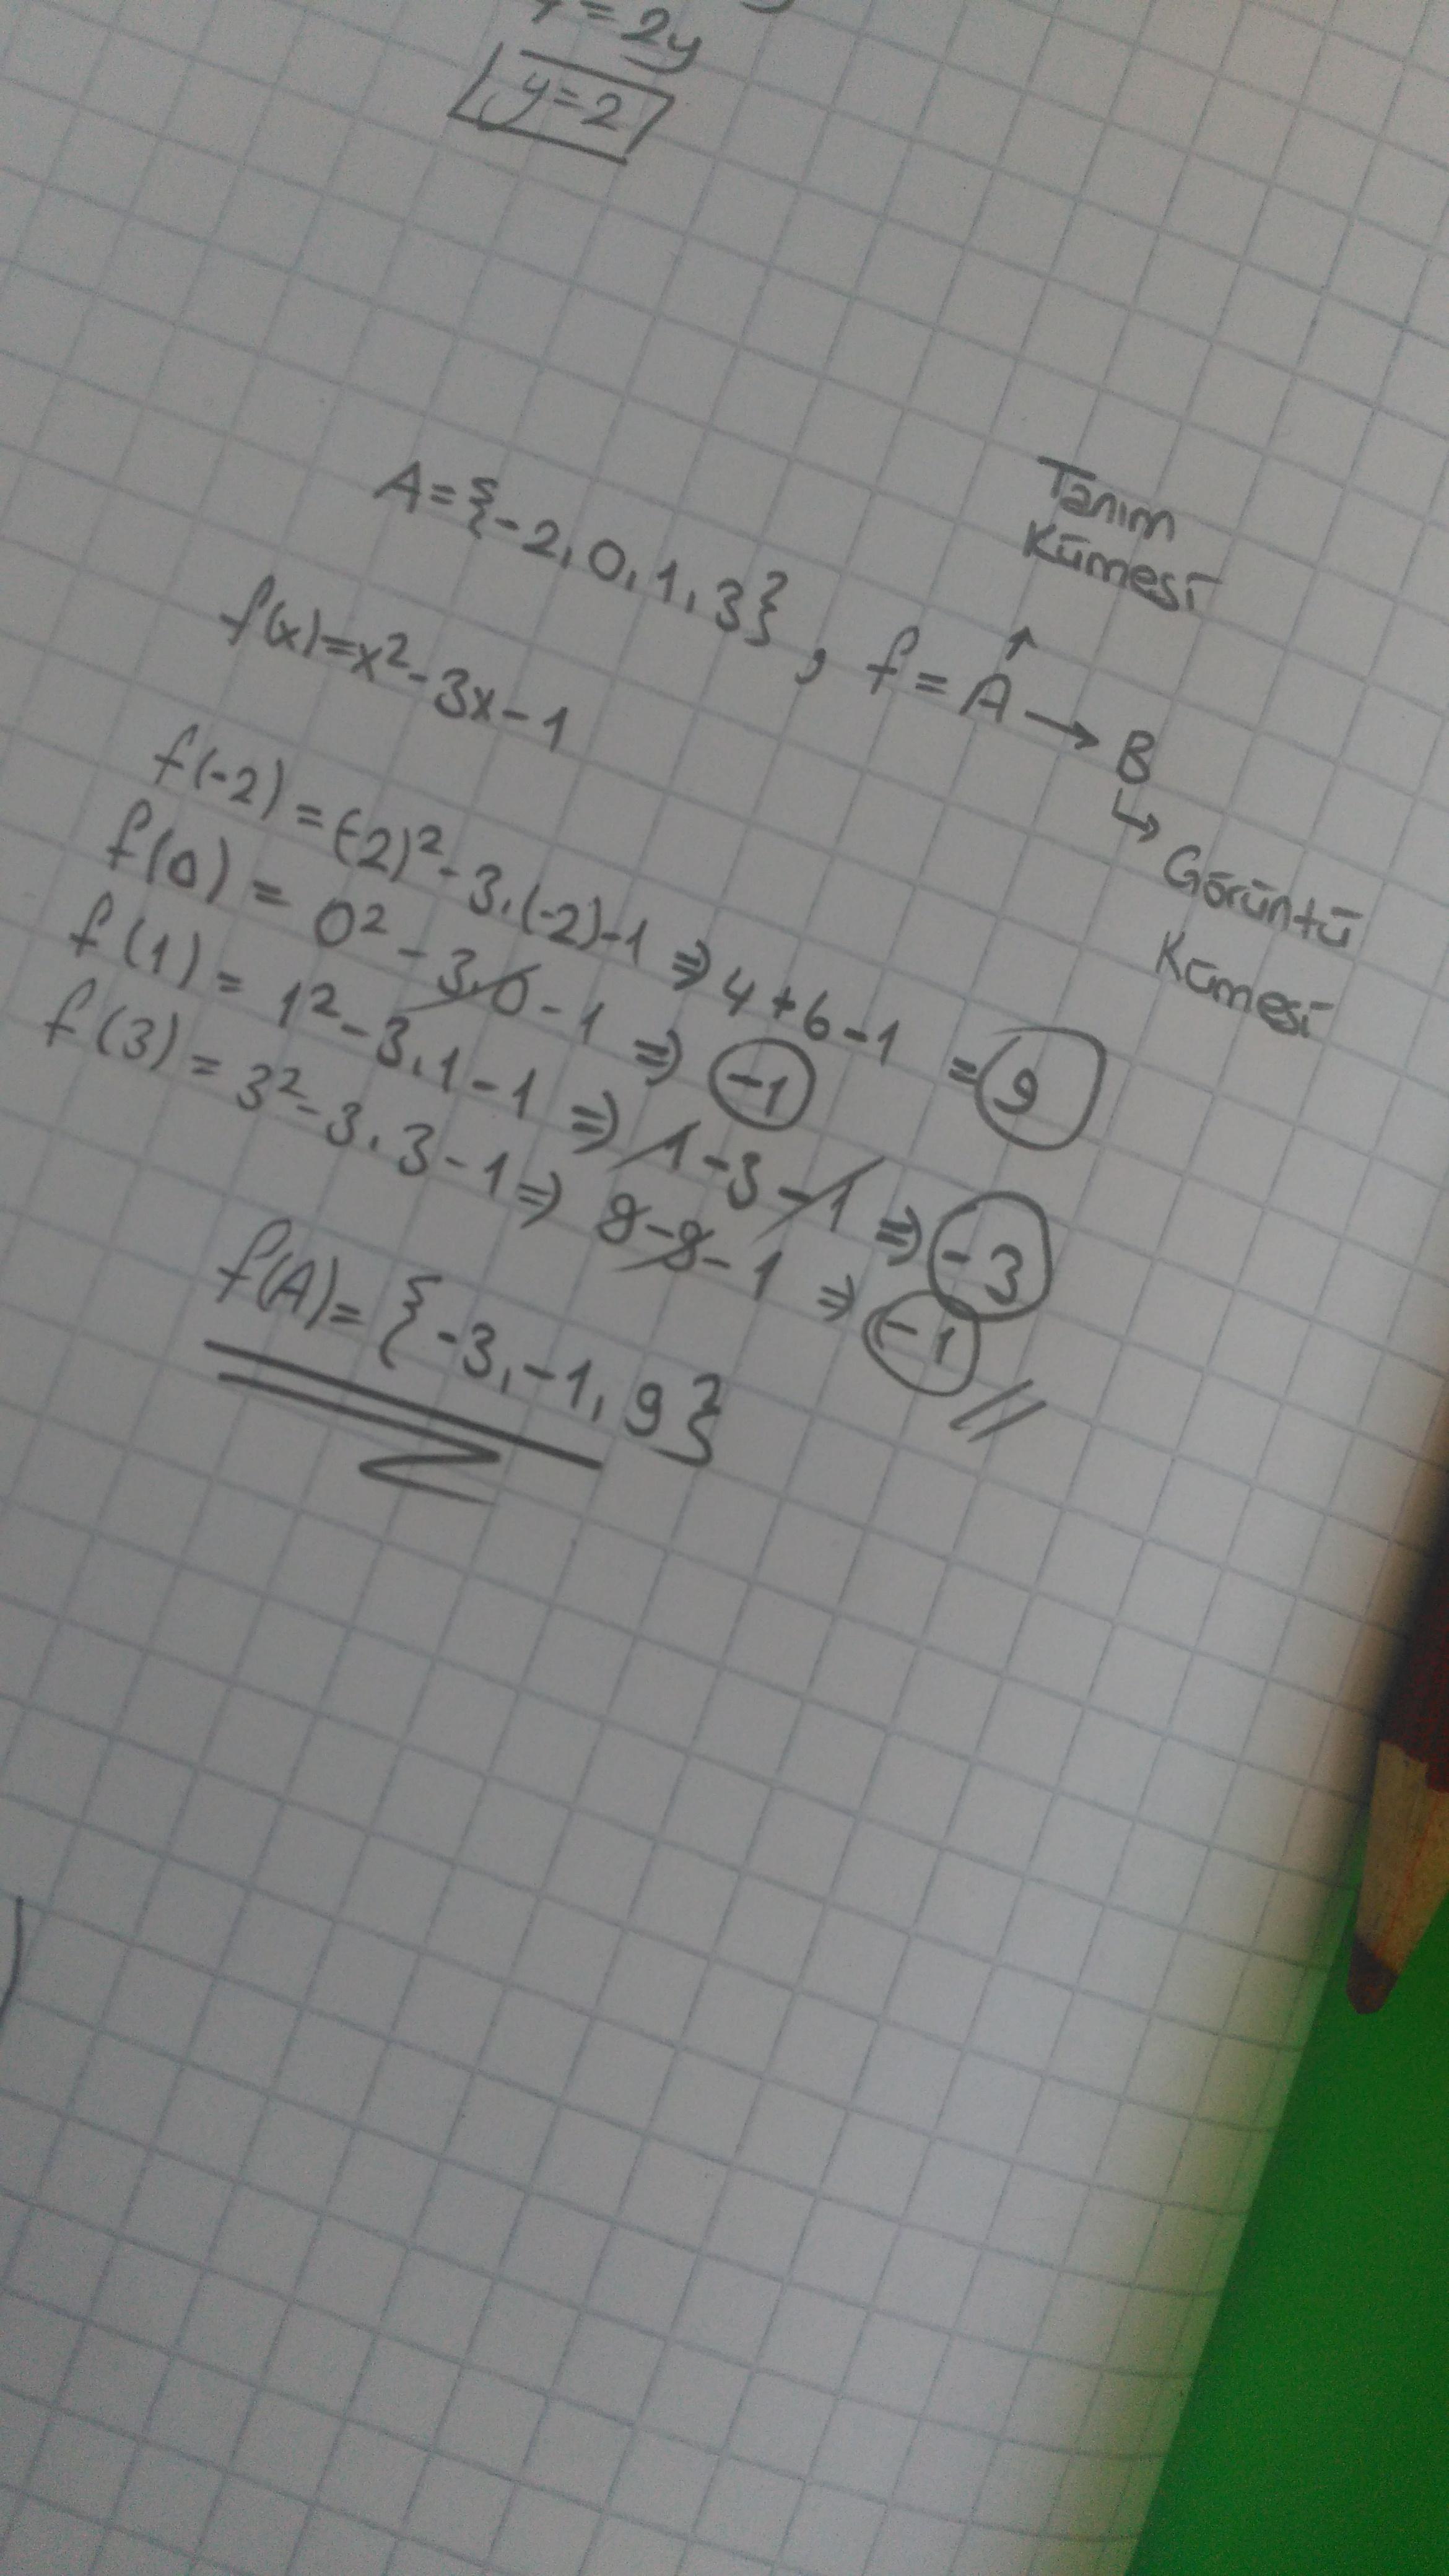 = 2y
y=2
A={-2, 0, 1, 3} , f = A → B
Tanım
Kümesi
↑
↳ Görüntü
Kümesi
f(x)=x²-3x-1
f(-2) = (-2)²-3.(-2)-1 ⇒ 4+6-1 = 9
f(0) = 0²-3.0-1 ⇒ -1
f(1) = 1²-3.1-1 ⇒ 1-3-1 ⇒ -3
f(3) = 3²-3.3-1 ⇒ 9-9-1 ⇒ -1 //
f(A)= {-3, -1, 9}